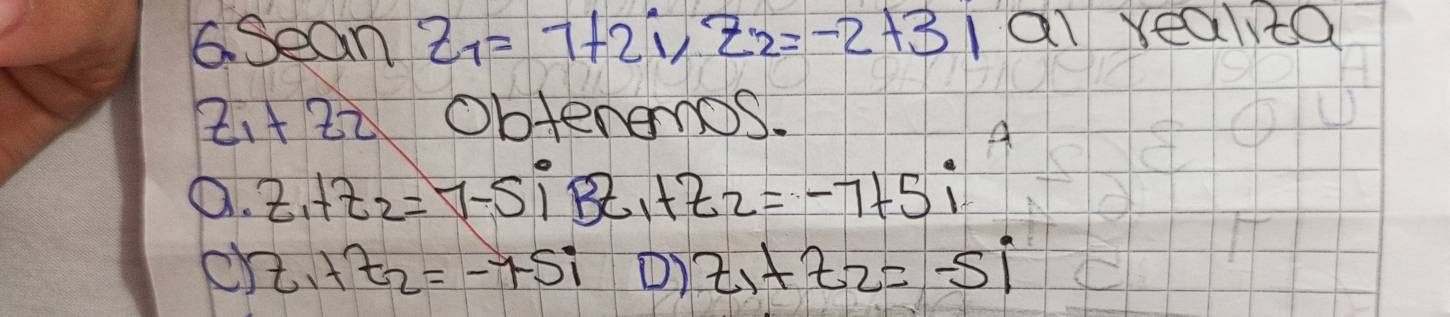 6. Sean z1 = 1+2i, z2 = -2+3i al realiza
z1+z2 Obtenemos.
a. z1+z2 = 1-5i B z1+z2 = -1+5i
C) z1+z2 = -1-5i D) z1+z2 = -5i